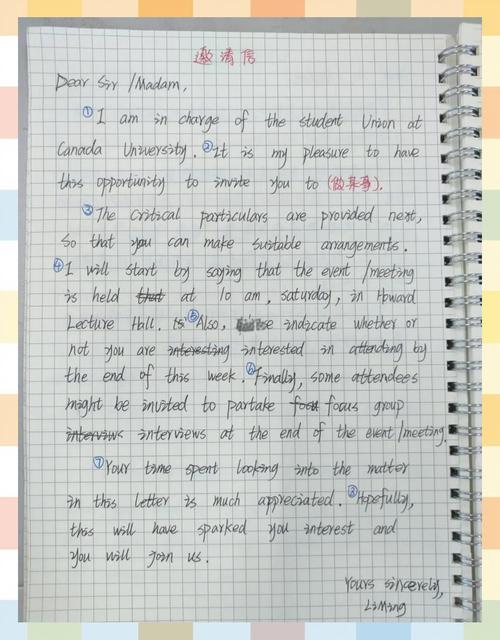 邀请信
Dear Sir /Madam,
①I am in charge of the student Union at
Canada University. ②It is my pleasure to have
this opportunity to invite you to (做某事).
③The critical particulars are provided next,
so that you can make suitable arrangements.
④I will start by saying that the event /meeting
is held that at 10 am, saturday, in Howard
Lecture Hall. Is ⑤Also, indicate whether or
not you are interesting interested in attending by
the end of this week. ⑥Finally, some attendees
might be invited to partake focu focus group
interviws interviews at the end of the event/meeting.
⑦Your time spent looking into the matter
in this letter is much appreciated. ⑧Hopefully,
this will have sparked you interest and
you will join us.
Yours sincerely,
LiMing